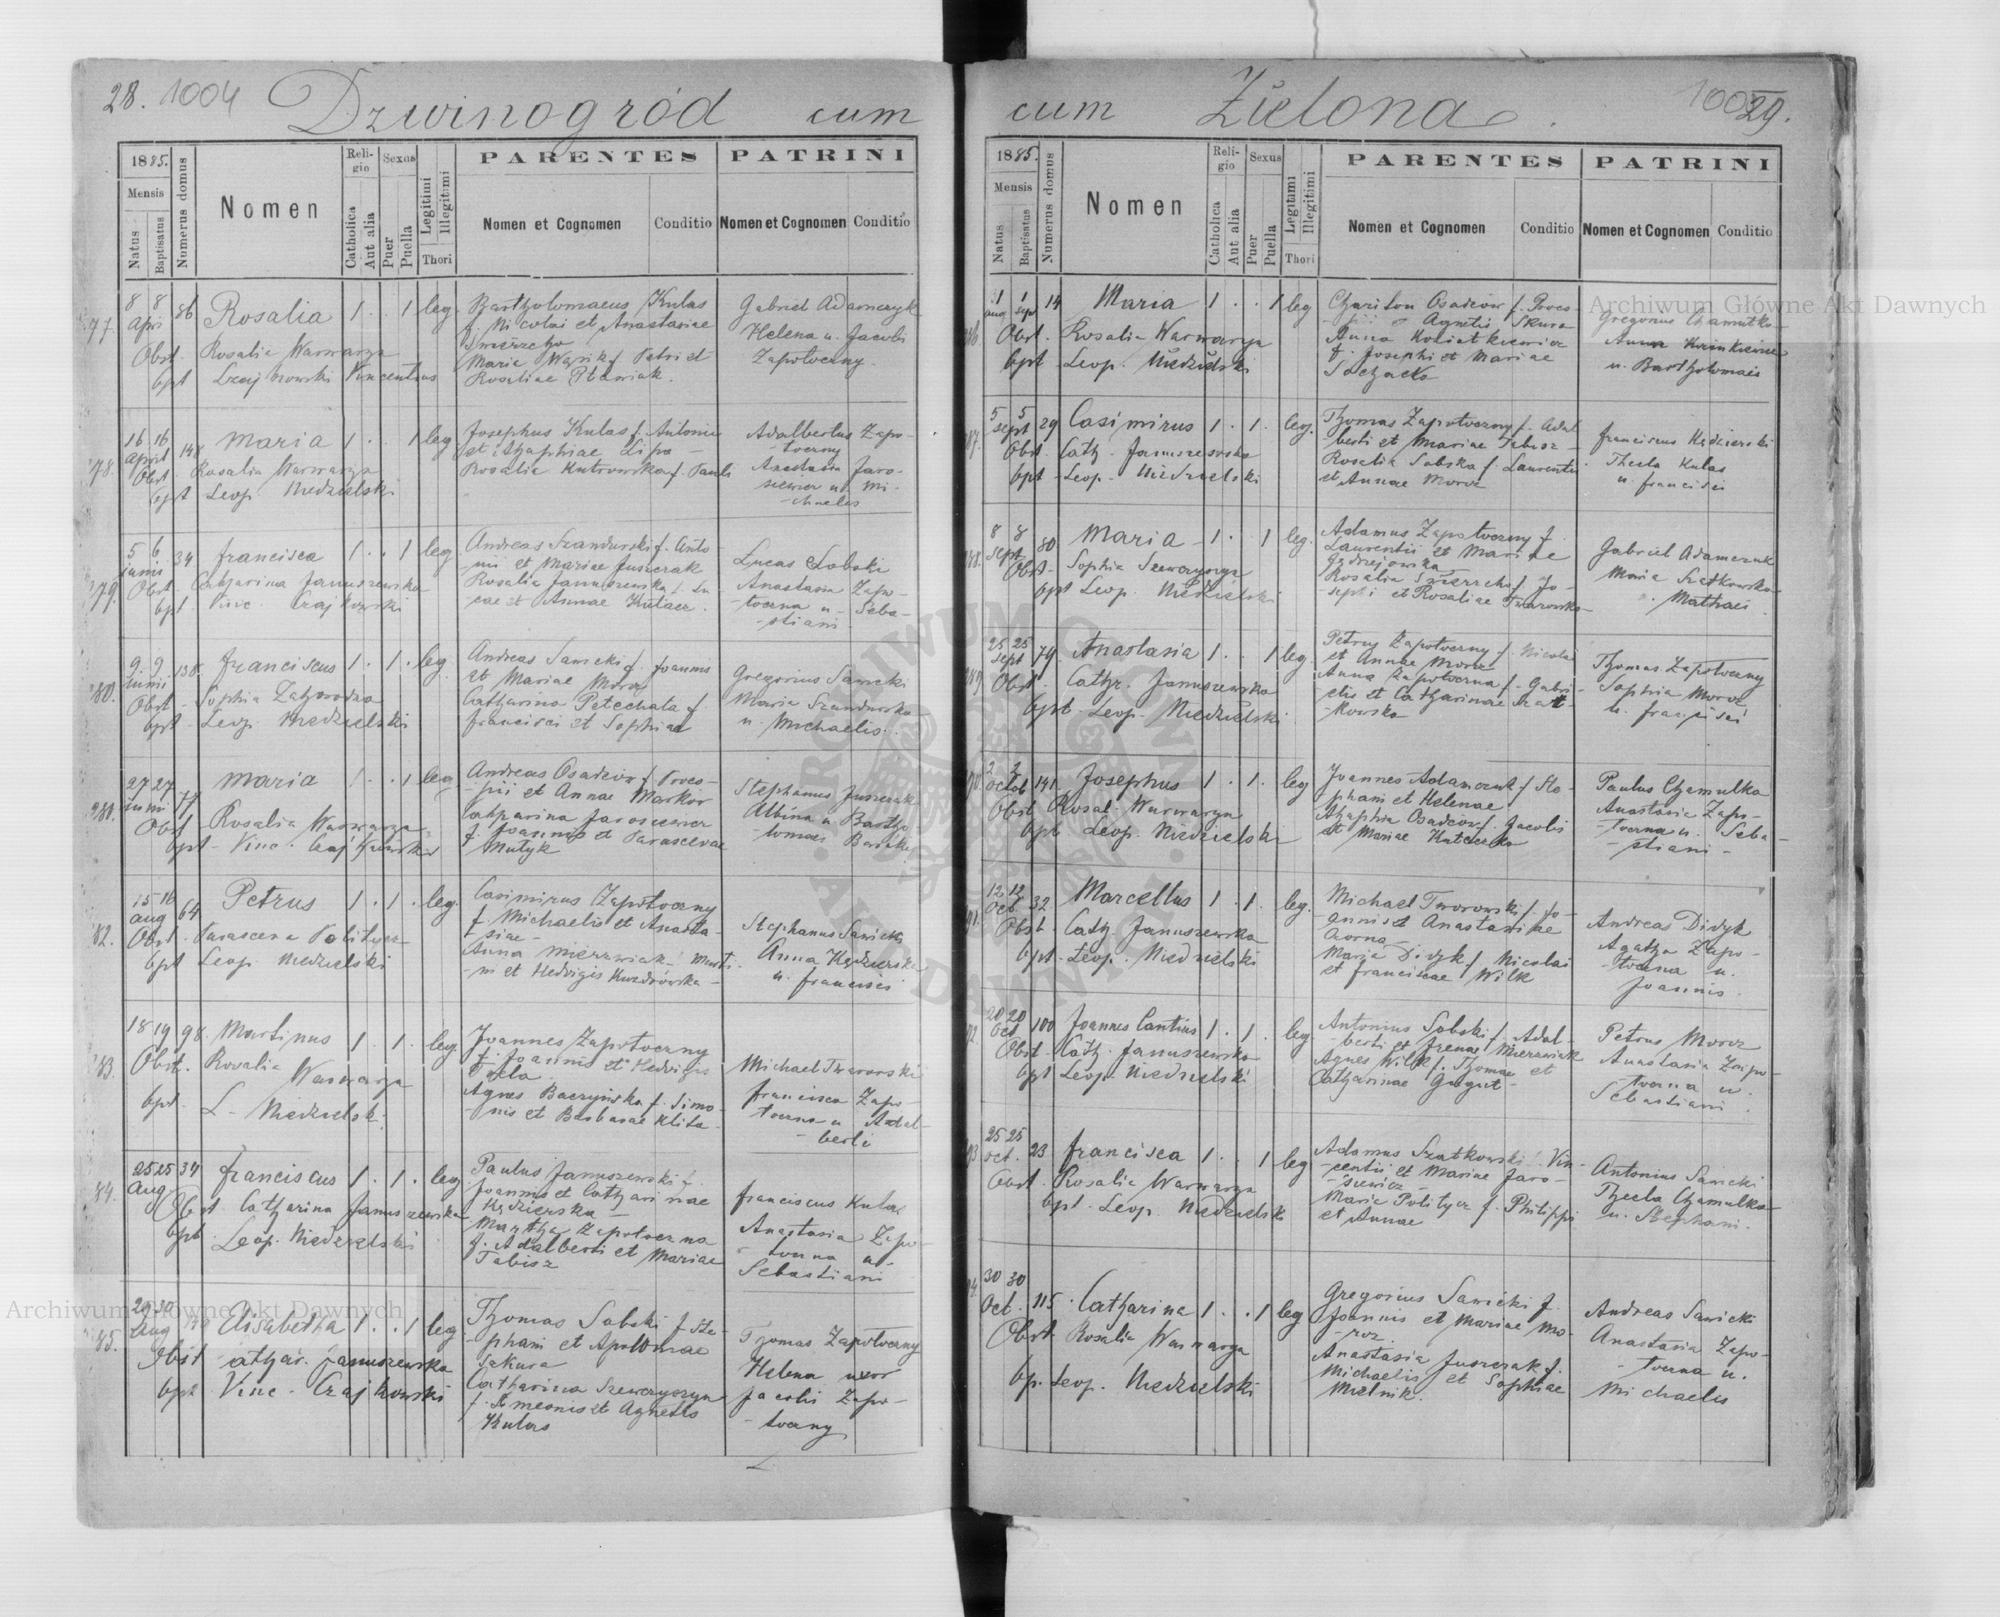 28. 1004 Dzwinogród cum
1885.
Mensis
Natus
Baptisatus
Numerus domus
Nomen
Religio
Catholica
Aut alia
Sexus
Puer
Puella
Legitimi
Illegitimi
Thori
PARENTES
Nomen et Cognomen
Conditio
PATRINI
Nomen et Cognomen
Conditio
77. 8 8 86 Rosalia 1 . . 1 leg.
Apri
Obst. Rosalia Warwarza
bpt Czajkowski Vincentius
Bartholomaeus Kulas
f. Nicolai et Anastasiae
Swierzcho
Maria
Rosaliae
Gabriel Adamczyk
Helena u. Jacobi
Zapotoczny
78. 16 16 148 Maria 1 . . 1 leg
April
Obst. Rosalia Warwarza
bpt Leop. Niedzielski
Josephus Kulas f. Antonii
et Agaphiae Lipa
Rosalia Kutrowska f. Pauli
Adalbertus Zapo-
toczny
Anastasia Jaro-
siewicz u. Mi-
chaelis
79. 5 6 34 Francisca 1 . . 1 leg.
junii
Obst. Catharina Januszewska
bpt. Vinc. Czajkowski
Andreas Szandurski f. Anto-
nii et Mariae Juszczak
Rosalia Januszewska f. Lu-
cae et Annae Kulacz.
Lucas Sobski
Anastasia Zapo-
toczna u. Seba-
stiani
80. 9. 9 138. Franciscus 1 . 1 . leg.
junii
Obst. Sophia Zahorodna
bpt. Leop. Niedzielski
Andreas Sawicki f. Joannis
et Mariae Moroz
Catharina Petechala f.
Francisci et Sophiae
Gregorius Sawicki
Maria Szandurska
u. Michaelis.
281. 27 27 77 Maria 1 . . 1 leg
junii
Obst. Rosalia Warwarza
bpt. Vinc. Czajkowski
Andreas Osadców f. Proco-
pii et Annae Markow
Catharina Jarosiewicz
f. Joannis et Parascevae
Mutyk
Stephanus Juszczak
Albina u. Bartho
lomaei
82. 15 16 64 Petrus 1 . 1 . leg.
aug
Obst. Parascena Politycz
bpt Leop. Niedzielski
Casimirus Zapotoczny
f. Michaelis et Anasta-
siae
Anna Mierzwiak f. Marti-
ni et Hedvigis
Stephanus Sawicki
Anna Kędzierska
u. Francisci
83. 18 19 98. Martinus 1 . 1 . leg
Obst. Rosalia
Warwarza
bpt. L. Niedzielski
Joannes Zapotoczny
f. Joannis et Hedvigis
Agnes Baczyńska f. Simo-
nis et Barbarae Klita
Michael Tworowski
Francisca Zapo-
toczna u. Adal-
berti
84. 25 25 34 Franciscus 1 . 1 . leg.
Aug
Obst. Catharina Januszewska
bpt. Leop. Niedzielski
Paulus Januszewski f.
Joannis et Catharinae
Kędzierska
Martha Zapotoczna
f. Adalberti et Mariae
Tabisz
Franciscus Kulas
Anastasia Zapo-
toczna u.
Sebastiani
85. 29 30 Elisabetha 1 . . 1 leg
Aug
Obst athar. Januszewska
bpt. Vinc. Czajkowski
Thomas Sobski f. Ste-
phani et Apoloniae
Sakura
Catharina Szewczyszyn
f. Simeonis et Agnetis
Kulas
Thomas Zapotoczny
Helena uxor
Jacobi Zapo-
toczny
cum Zielona. 29.
1885.
Mensis
Natus
Baptisatus
Numerus domus
Nomen
Religio
Catholica
Aut alia
Sexus
Puer
Puella
Legitimi
Illegitimi
Thori
PARENTES
Nomen et Cognomen
Conditio
PATRINI
Nomen et Cognomen
Conditio
1 1 14 Maria 1 . . 1 leg
Obst. Rosalia Warwarza
bpt Leop. Niedzielski
Chariton Osadców f. Proco-
pii et Agnetis Skura
Anna Kwiatkiewicz
f. Josephi et Mariae
Gregorius Chamulko
Anna
u. Bartholomaei
87. 5 5 29 Casimirus 1 . 1 . leg.
sept
Obst. Cath. Januszewska
bpt Leop. Niedzielski
Thomas Zapotoczny f. Adal
berti et Mariae Tabisz
Rosalia Sobska f. Laurentii
et Annae Moroz
Franciscus Kędzierski
Thecla Kulas
u. Francisci
88. 8 8 80 Maria 1 . . 1 leg.
sept
Obst. Sophia Szewczyszyn
bpt Leop. Niedzielski
Adamus Zapotoczny f.
Laurentii et Mariae
Rosalia f. Jo-
sephi et Rosaliae Tworowska
Gabriel Adamczuk
Maria Szatkowska
u. Mathaei
89. 25 25 79 Anastasia 1 . . 1 leg.
sept
Obst. Cathr. Januszewska
bpt. Leop. Niedzielski
Petrus Zapotoczny f. Nicolai
et Annae Moroz
Anna Zapotoczna f. Gabri-
elis et Catharinae Szat-
kowska
Thomas Zapotoczny
Sophia Moroz
u. Francisci
90. 2 2 141 Josephus 1 . 1 . leg
octob
Obst Rosal. Warwarza
bpt. Leop. Niedzielski
Joannes Adamczuk f. Ste-
phani et Helenae
Agaphia Osadców f. Jacobi
et Mariae
Paulus Chamulka
Anastasia Zapo-
toczna u. Seba-
stiani
91. 12 12 32 Marcellus 1 . 1 . leg.
Oct.
Obst. Cath. Januszewska
bpt. Leop. Niedzielski
Michael Tworowski f. Jo-
annis et Anastasiae
Czorna
Maria Didyk f. Nicolai
et Franciscae Wilk
Andreas Didyk
Agatha Zapo-
toczna u.
Joannis.
92. 20 20 100 Joannes Cantius 1 . 1 . leg
Oct.
Obst. Cath. Januszewska
bpt Leop. Niedzielski
Antonius Sobski f. Adal-
berti et Irenae Mierzwiak
Agnes Wilk f. Thomae et
Catharinae
Petrus Moroz
Anastasia Zapo-
toczna u.
Sebastiani
93 25 25 23 Francisca 1 . . 1 leg
oct.
Obst. Rosalia Warwarza
bpt. Leop. Niedzielski
Adamus Szatkowski f. Vin-
centii et Mariae Jaro-
siewicz
Maria Politycz f. Philippi
et Annae
Antonius Sawicki
Thecla Chamulka
u. Stephani.
94. 30 30 115. Catharina 1 . . 1 leg
Oct.
Obst. Rosalia Warwarza
bp. Leop. Niedzielski
Gregorius Sawicki f.
Joannis et Mariae Mo-
roz.
Anastasia Juszczak f.
Michaelis et Sophiae
Mielnik.
Andreas Sawicki
Anastasia Zapo-
toczna u.
Michaelis
Archiwum Główne Akt Dawnych
Archiwum Główne Akt Dawnych